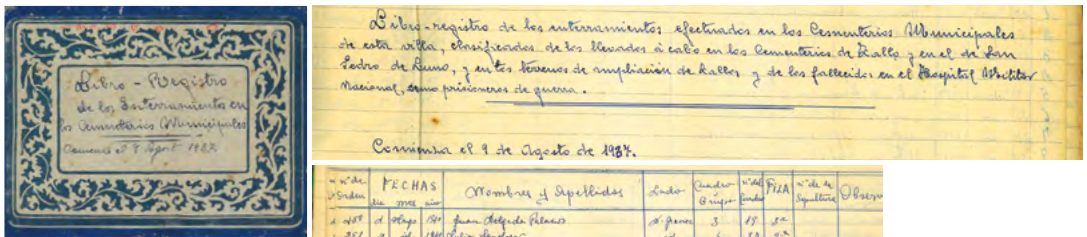 Libro-Registro
de los Enterramientos en
los Cementerios Municipales
Comienza el 9 Agost 1937
Libro-registro de los enterramientos efectuados en los Cementerios Municipales
de esta villa, clasificados de los llevados á cabo en los Cementerios de Zallo y en el de San
Pedro de Luno, y en los terrenos de ampliación de Zallo, y de los fallecidos en el Hospital Militar
Nacional, como prisioneros de guerra.
Comienza el 9 de Agosto de 1937.
nº de Orden FECHAS Nombres y Apellidos Lado Cuadro Grupo nº del FILA nº de la Sepultura Observ
dia mes año
Mayo Juan Delgado Palacios 3 19 3ª